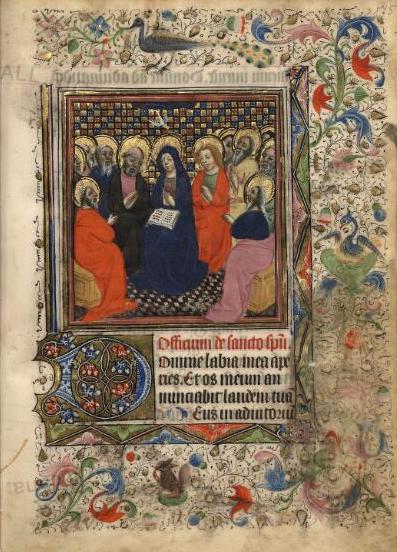 Officium de sancto spu
Domine labia mea ape
ries. Et os meum an
nunciabit laudem tua
Deus in adiuto